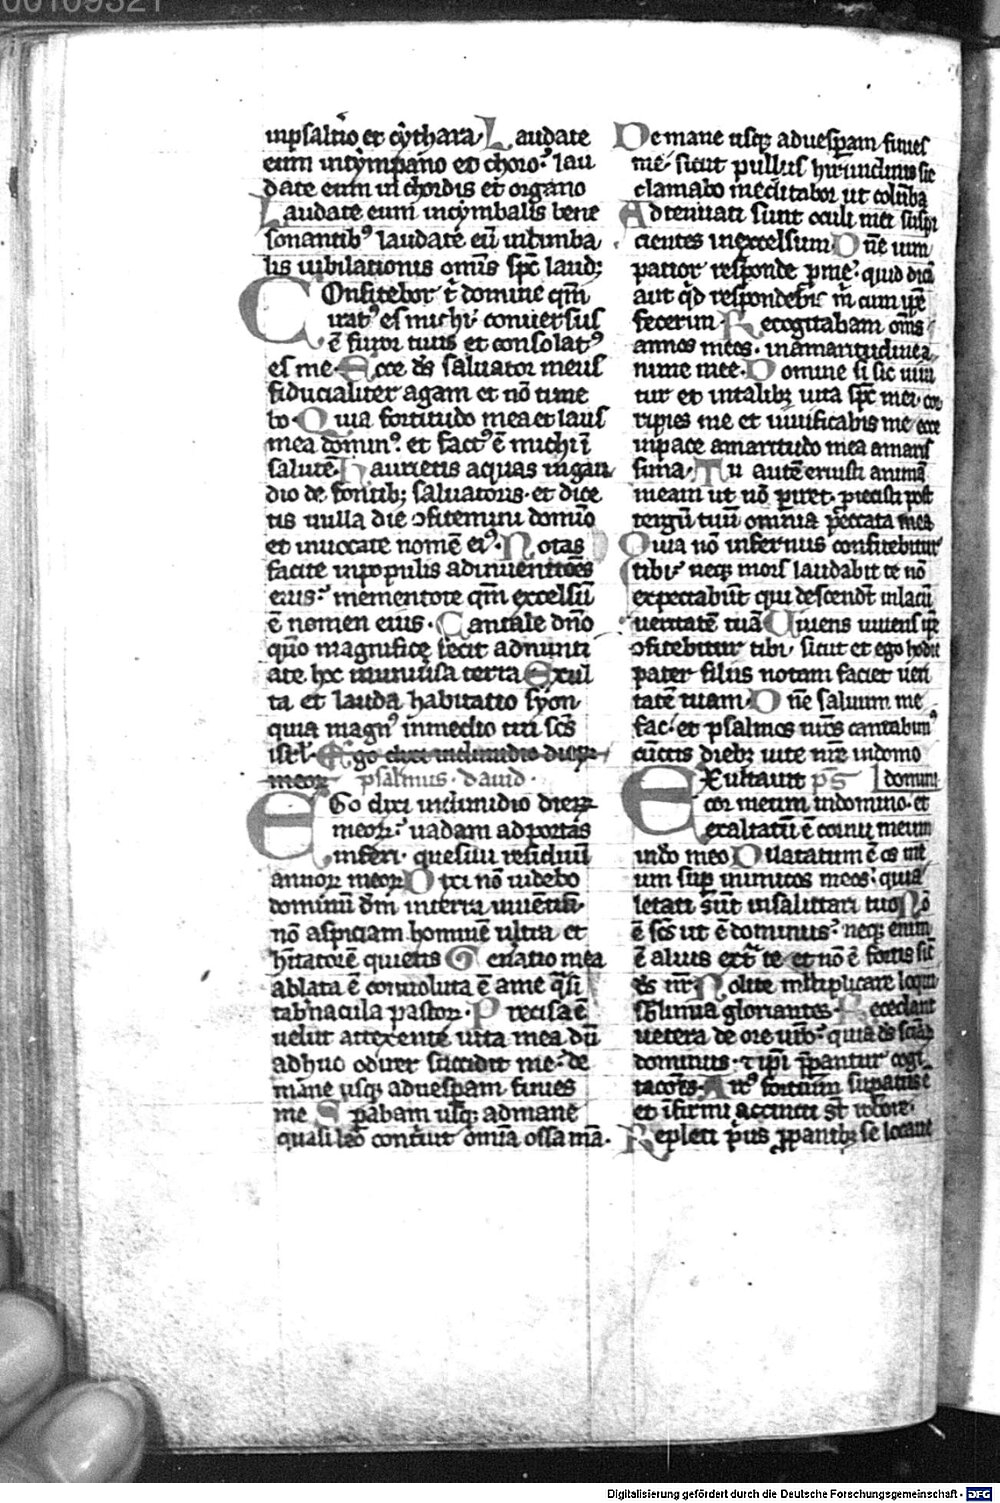 00109321
inpsalt̄io et cẏthara. Laudate
eum intẏmpano et choro. lau
date eum in chordis et organo
Laudate eum incẏmbalis bene
sonantibꝰ laudate eū incimba
lis iubilationis om̄is sp̄c laud;
Onfitebor t̄ domine qm̄
iratꝰ es michi conuersus
ē furor tuus et consolatꝰ
es me. Ecce ds̄ saluator meus
fiducialiter agam et nō time
bo. Quia fortitudo mea et laus
mea dominꝰ. et factꝰ ē michi ī
salutē. Haurietis aquas ingau
dio de fontib; saluatoris. et dice
tis in illa die ↄfitemini domīo
et inuocate nomē eiꝰ. Notas
facite inpopulis adinuentiōes
eius. mementote qm̄ excelsū
ē nomen eius. Cantate dn̄o
qm̄o magnifice fecit adnunti
ate hoc inuniūsa terra Exul
ta et lauda habitatio sẏon
quia magnꝰ inmedio tui sc̄s
isrl. Ego dixi indimidio dieꝝ
meoꝝ psalmus. dauid.
EGo dixi indimidio dieꝝ
meoꝝ. uadam adportas
inferi. quesiui residuū
annoꝝ meoꝝ Dixi nō uidebo
dominū dm̄ interra uiuētiū.
nō aspiciam hominē ultra et
hītatorē quietis Generatio mea
ablata ē conuoluta ē ame q̄si
tab̄nacula pastoꝝ. Precisa ē
uelut atexente uita mea dū
adhuc ordirer succidit me. de
mane usqꝫ aduesp̄am finies
me Sp̄abam usqꝫ admane
quasi leo contriuit om̄ia ossa m̄a.
De mane usqꝫ aduesp̄am finies
me. sicut pullus hirundinis sic
clamabo meditabor ut colūba
Adtenuati sunt oculi mei suspi
cientes inexcelsum Dn̄e uim
patior responde p̄me. quid dicā
aut qd̄ respondebit m̄ cum ip̄e
fecerim Recogitabam om̄s
annos meos. inamaritudine a
nime mee. Domine si sic uiui
tur et intalibꝫ uita sp̄c mei. cor
ripies me et uiuificabis me ecce
inpace amaritudo mea amaris
sima. Tu autē eruisti animā
meam ut nō p̄iret. p̄iecisti post
tergū tuū omnia peccata mea
Quia nō infernus confitebitur
tibi. neqꝫ mors laudabit te nō
expectabūt qui descendūt inlacū
ueritatē tuā Viuens uiuens ip̄e
ↄfitebitur tibi. sicut et ego hodie
pater filiis notam faciet ueri
tatē tuam. Dn̄e saluum me
fac. et psalmos nr̄os cantabimꝰ
cūctis diebꝫ uite nr̄e indomo
Exultauit p̄s domini
cor meum indomino. et
exaltatū ē cornu meum
indō meo Dilatatum ē os me
um sup̄ inimicos meos. quia
letati sūt insalutari tuo Nō
ē sc̄s ut ē dominus. neqꝫ enim
ē alius ext̄ te et nō ē fortis sic̄
ds̄ nr̄ Nolite mltiplicare loqui
sublimia gloriantes. Recedant
uetera de ore ur̄o. quia ds̄ sciār
dominus. τ ip̄i p̄parantur cogi
tacōes. Arcꝰ fortium supatus ē
et īfirmi accincti st̄ robore.
Repleti p̄us p̄panibꝫ se locaue
Digitalisierung gefördert durch die Deutsche Forschungsgemeinschaft - DFG